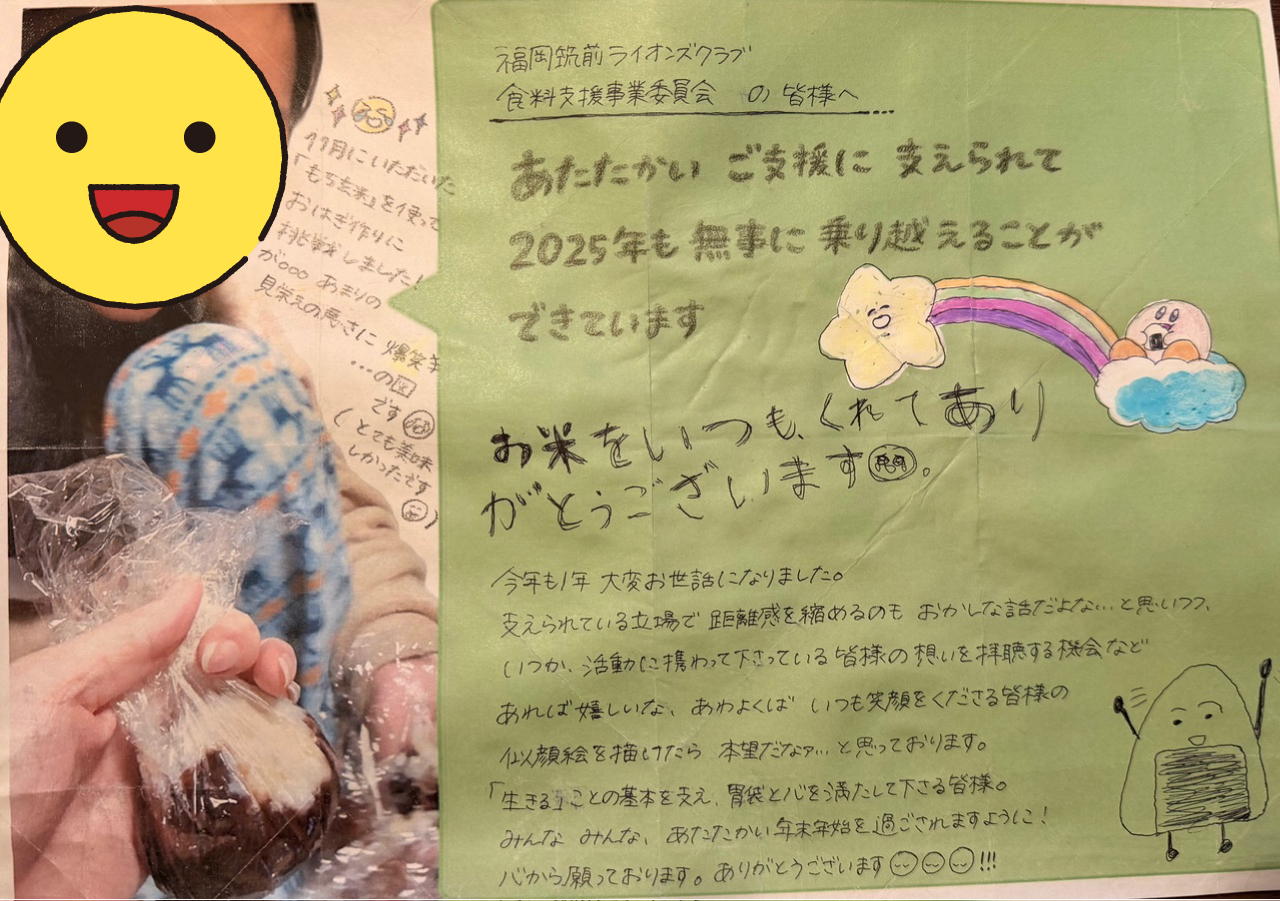 福岡筑前ライオンズクラブ
食料支援事業委員会 の 皆様へ
あたたかい ご支援に 支えられて
2025年も 無事に 乗り越えることが
できています
お米をいつも、くれてあり
がとうございます。
今年も1年 大変お世話になりました。
支えられている立場で 距離感を縮めるのも おかしな話だよな…と思いつつ、
いつか、活動に携わって下さっている 皆様の 想いを拝聴する機会など
あれば嬉しいな、あわよくば いつも笑顔をくださる皆様の
似顔絵を描けたら 本望だなァ…と思っております。
「生きる」ことの基本を支え、胃袋と心を満たして下さる皆様。
みんな みんな、あたたかい年末年始を過ごされますように!
心から願っております。ありがとうございます!!!
11月にいただいた
「もち玄米」を使って
おはぎ作りに
挑戦しました!
が○○○ あまりの
見栄えの悪さに 爆笑
…の図
です
(とても美味
しかったです
)